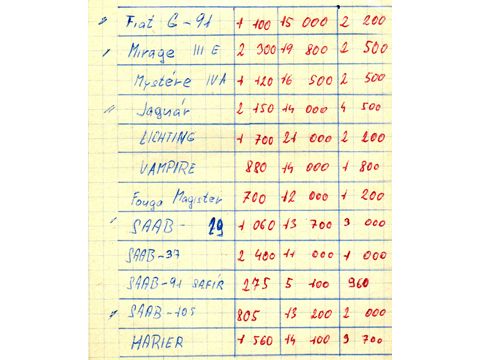 " Fiat G-91 1 100 15 000 2 200
" Mirage III E 2 300 19 800 2 500
Mystére IVA 1 120 16 500 2 500
" Jaguár 2 150 14 000 4 500
LICHTING 1 700 21 000 2 200
VAMPIRE 880 14 000 1 800
Fouga Magister 700 12 000 1 200
" SAAB- 29 1 060 13 700 3 000
SAAB-37 2 400 11 000 1 000
SAAB-91 SAFÍR 275 5 100 960
" SAAB-105 805 13 200 2 000
HARIER 1 560 14 100 3 700